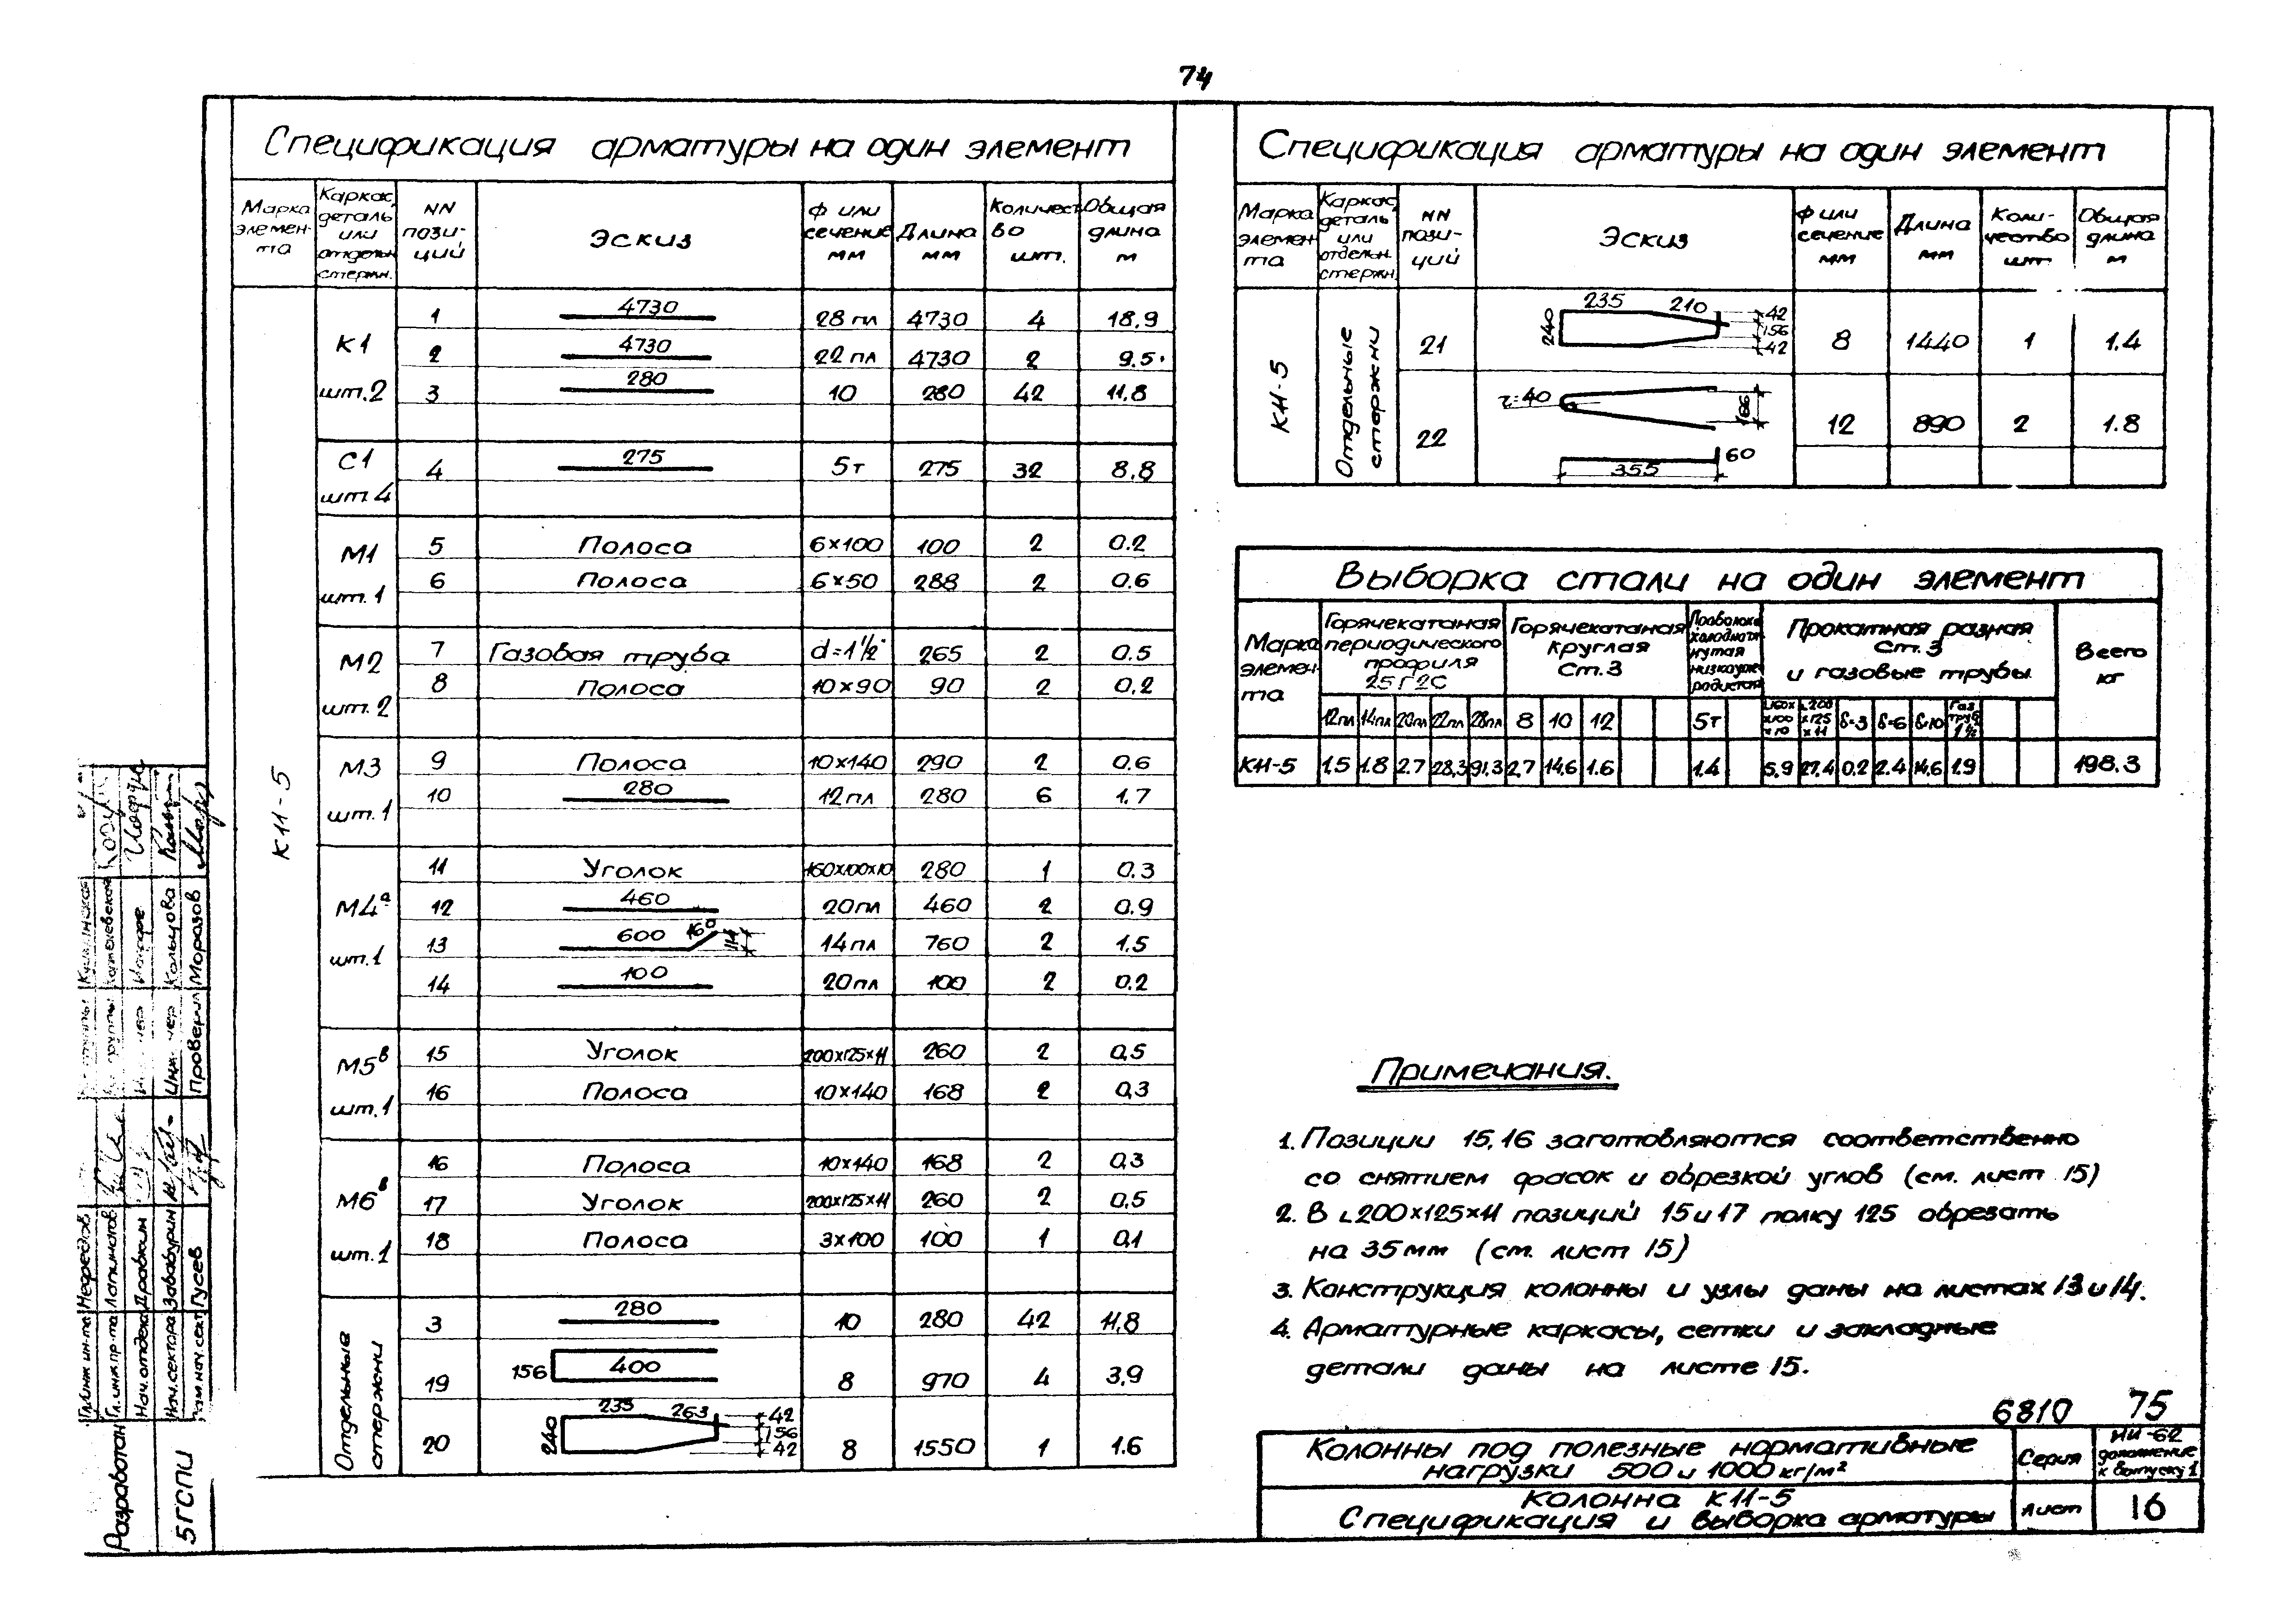 74
Спецификация арматуры на один элемент
Марка элемен-та | Каркас, деталь или отдельн. стержн. | NN пози-ций | Эскиз | Ф или сечение мм | Длина мм | Количест во шт. | Общая длина м
К11-5
К1 шт.2 | 1 | 4730 | 28 пл | 4730 | 4 | 18,9
2 | 4730 | 22 пл | 4730 | 2 | 9.5
3 | 280 | 10 | 280 | 42 | 11,8
С1 шт 4 | 4 | 275 | 5т | 275 | 32 | 8,8
М1 шт.1 | 5 | Полоса | 6×100 | 100 | 2 | 0.2
6 | Полоса | 6×50 | 288 | 2 | 0.6
М2 шт.2 | 7 | Газовая труба | d=1½" | 265 | 2 | 0.5
8 | Полоса | 10×90 | 90 | 2 | 0,2
М3 шт.1 | 9 | Полоса | 10×140 | 290 | 2 | 0.6
10 | 280 | 12пл | 280 | 6 | 1.7
М4а шт.1 | 11 | Уголок | 160×100×10 | 280 | 1 | 0.3
12 | 460 | 20пл | 460 | 2 | 0.9
13 | 600 160 114 | 14пл | 760 | 2 | 1.5
14 | 100 | 20пл | 100 | 2 | 0.2
М5в шт.1 | 15 | Уголок | 200×125×11 | 260 | 2 | 0,5
16 | Полоса | 10×140 | 168 | 2 | 0,3
М6в шт.1 | 16 | Полоса | 10×140 | 168 | 2 | 0,3
17 | Уголок | 200×125×11 | 260 | 2 | 0,5
18 | Полоса | 3×100 | 100 | 1 | 0,1
Отдельные стержни | 3 | 280 | 10 | 280 | 42 | 11,8
19 | 156 400 | 8 | 970 | 4 | 3,9
20 | 240 235 263 42 156 42 | 8 | 1550 | 1 | 1.6
Спецификация арматуры на один элемент
Марка элемен та | Каркас, деталь или отдельн. стержн. | NN пози-ций | Эскиз | Ф или сечение мм | Длина мм | Коли-чество шт | Общая длина м
К11-5 | Отдельные стержни | 21 | 240 235 210 42 156 42 | 8 | 1440 | 1 | 1.4
22 | r=40 186 355 60 | 12 | 890 | 2 | 1.8
Выборка стали на один элемент
Марка элемен-та | Горячекатаная периодического профиля 25Г2С | Горячекатаная круглая Ст.3 | Проволока холоднотя-нутая низкоугле-родистая | Прокатная разная Ст.3 и газовые трубы | Всего кг
12пл | 14пл | 20пл | 22пл | 28пл | 8 | 10 | 12 | 5т | ∟160× ×100 ×10 | ∟200 ×125 ×11 | δ=3 | δ=6 | δ=10 | Газ. труб. 1½
К11-5 | 1.5 | 1.8 | 2.7 | 28,3 | 91,3 | 2,7 | 14,6 | 1.6 | 1.4 | 5,9 | 27.4 | 0.2 | 2.4 | 14,6 | 1.9 | 198.3
Примечания.
1. Позиции 15,16 заготовляются соответственно
со снятием фасок и обрезкой углов (см. лист 15)
2. В ∟200×125×11 позиций 15 и 17 полку 125 обрезать
на 35мм (см. лист 15)
3. Конструкция колонны и узлы даны на листах 13 и 14.
4. Арматурные каркасы, сетки и закладные
детали даны на листе 15.
6810 75
Колонны под полезные нормативные
нагрузки 500 и 1000 кг/м²
Серия
ИИ-62
дополнение
к выпуску 1
Колонна К11-5
Спецификация и выборка арматуры
Лист
16
Разработан
5ГСПИ
Гл.инж ин-та Нефедов
Гл.инж.пр-та Лапшинов
Нач.отдела Драбкин
Нач.сектора Завабурин
Зам.нач.сект. Гусев
Кольцова
Проверил Моразов